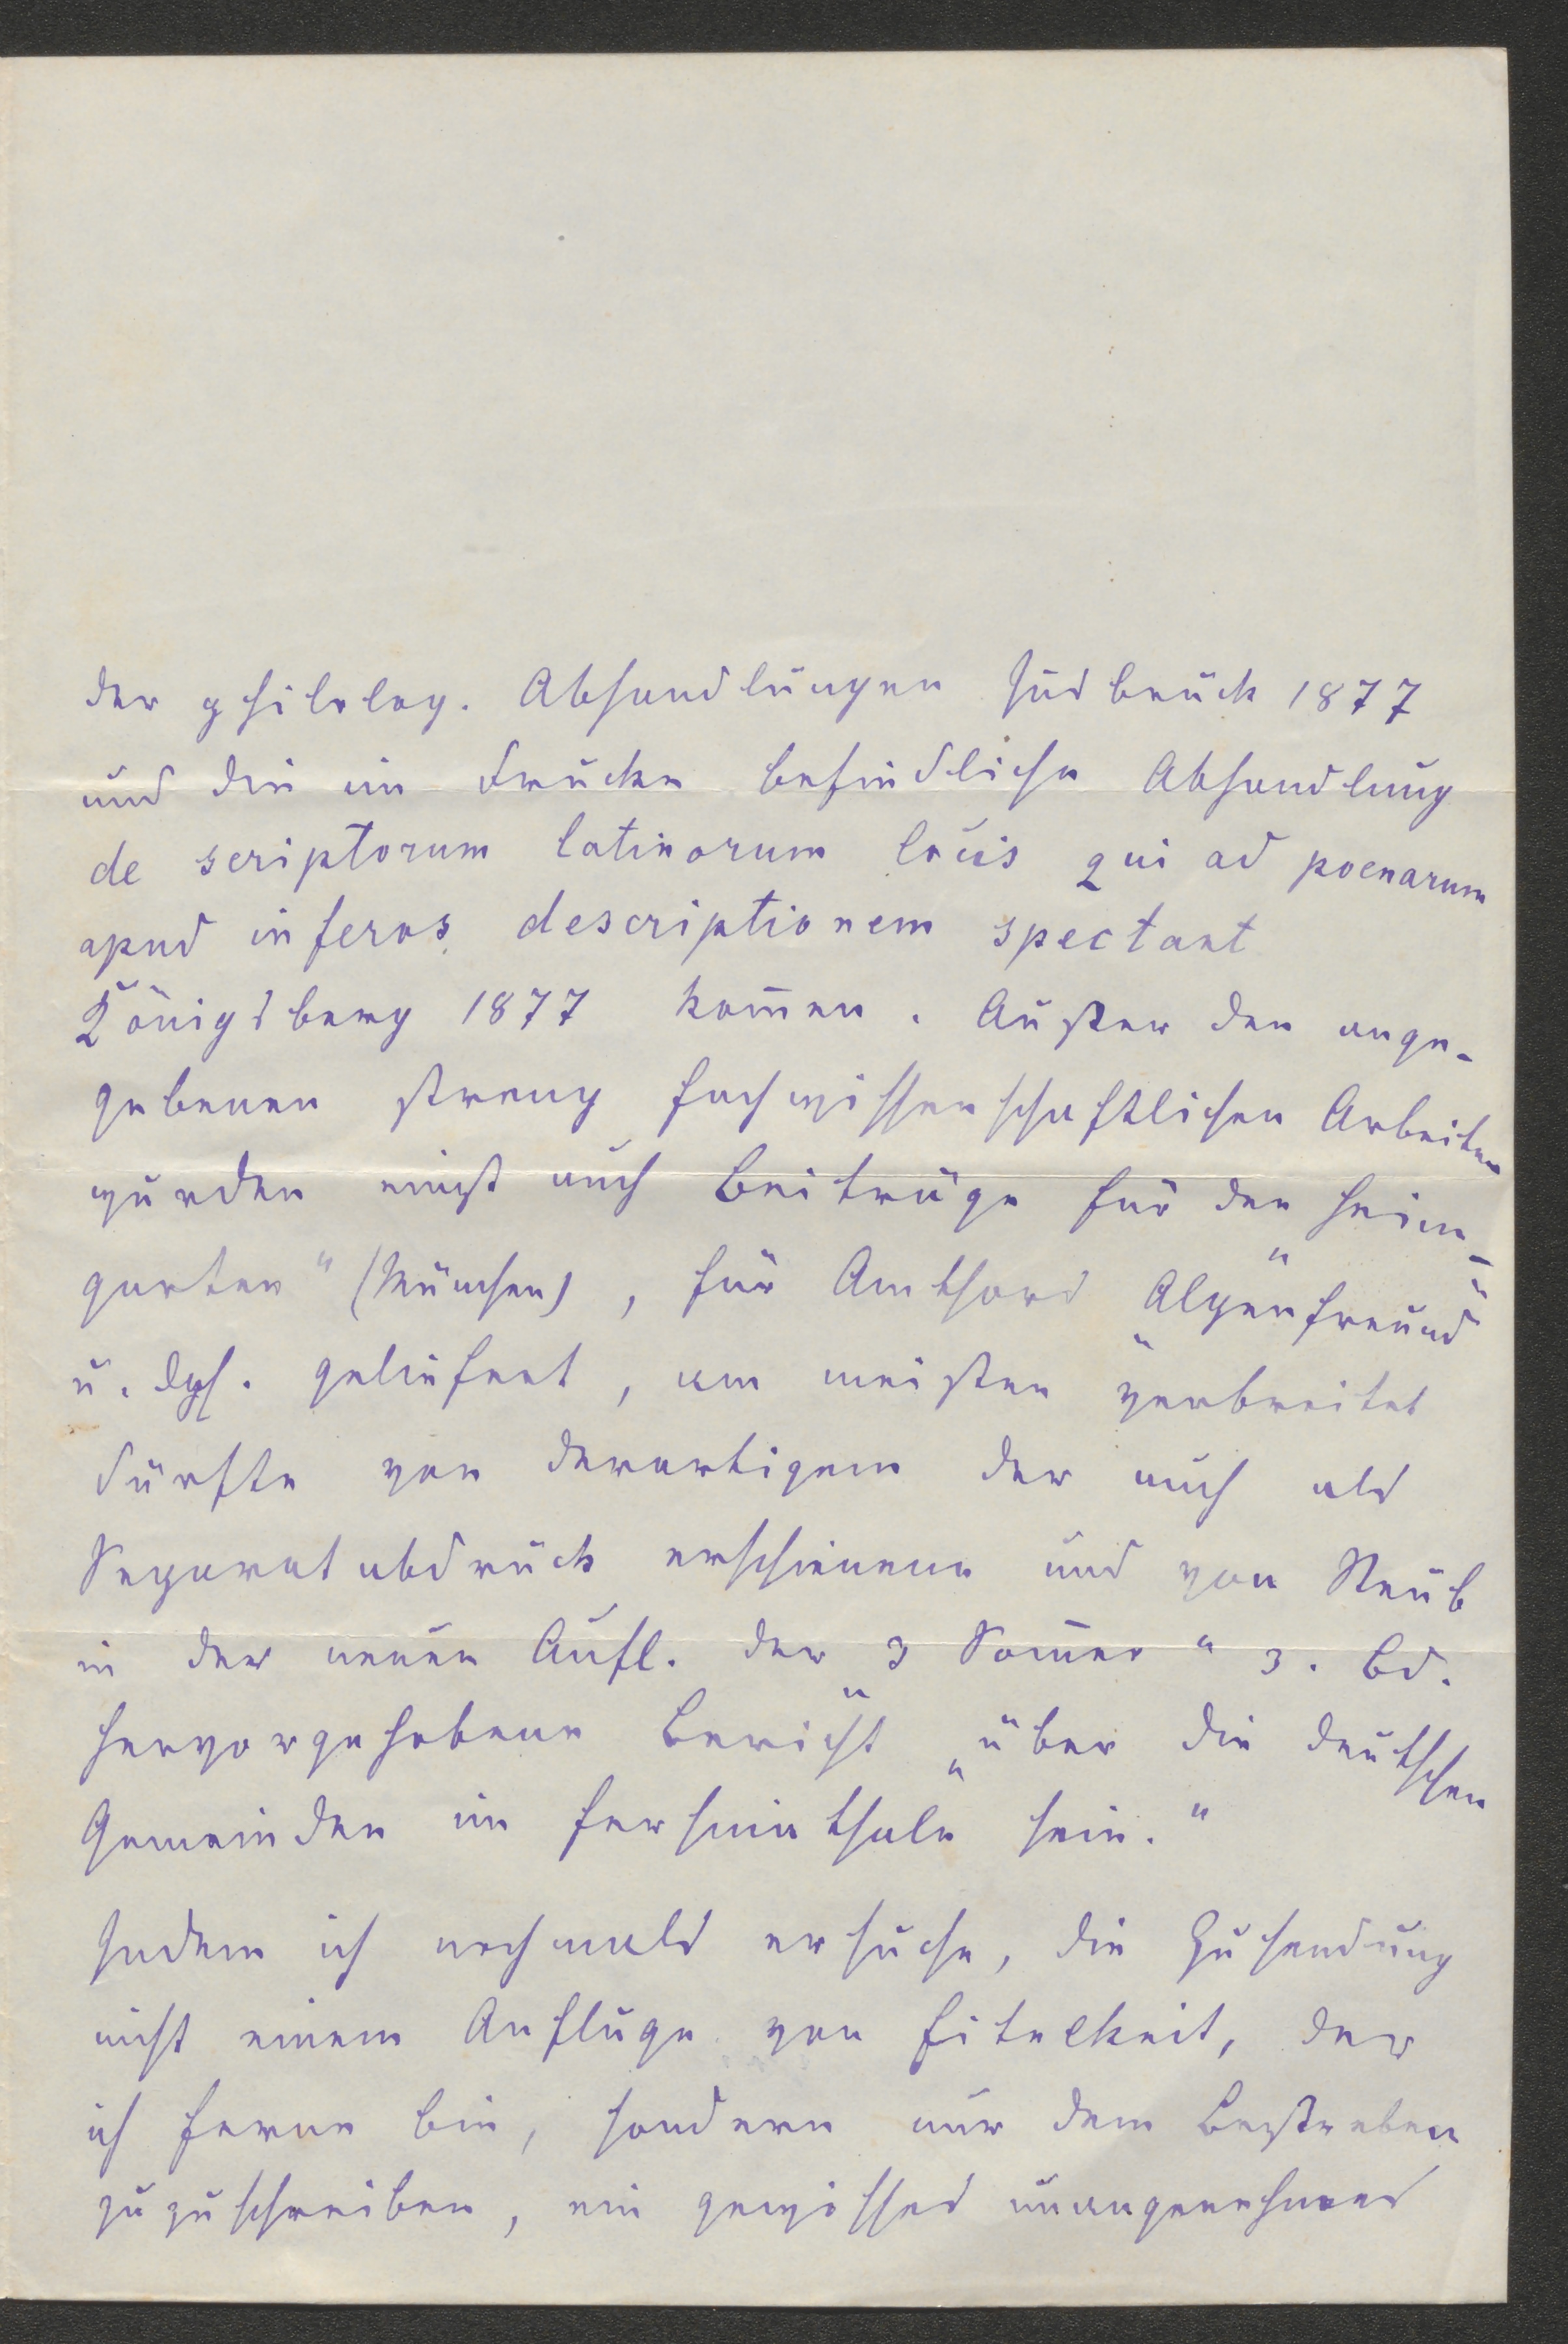 der philolog. Abhandlungen Insbruck 1877
und die im Drucke befindliche Abhandlung
de scriptorum latinorum locis qui ad poenarum
apud inferos descriptionem spectant
Königsberg 1877 kom̅en. Außer den ange-
gebenen streng fachwissenschaftlichen Arbeiten
wurden einst auch Beiträge für den „Heim-
garten“ (München), für Amthors „Alpenfreund“
u. dgl. geliefert, am meisten verbreitet
dürfte von derartigem der auch als
Separatabdruck erschienene und von Steub
in der neuen Aufl. der „3 Som̅er“ 3. Bd.
hervorgehobene Bericht „über die deutschen
Gemeinden im Fersinathale sein.“
Indem ich nochmals ersuche, die Zusendung
nicht einem Anfluge von Eitelkeit, der
ich ferne bin, sondern nur dem Bestreben
zuzuschreiben, ein gewisses unangenehmes